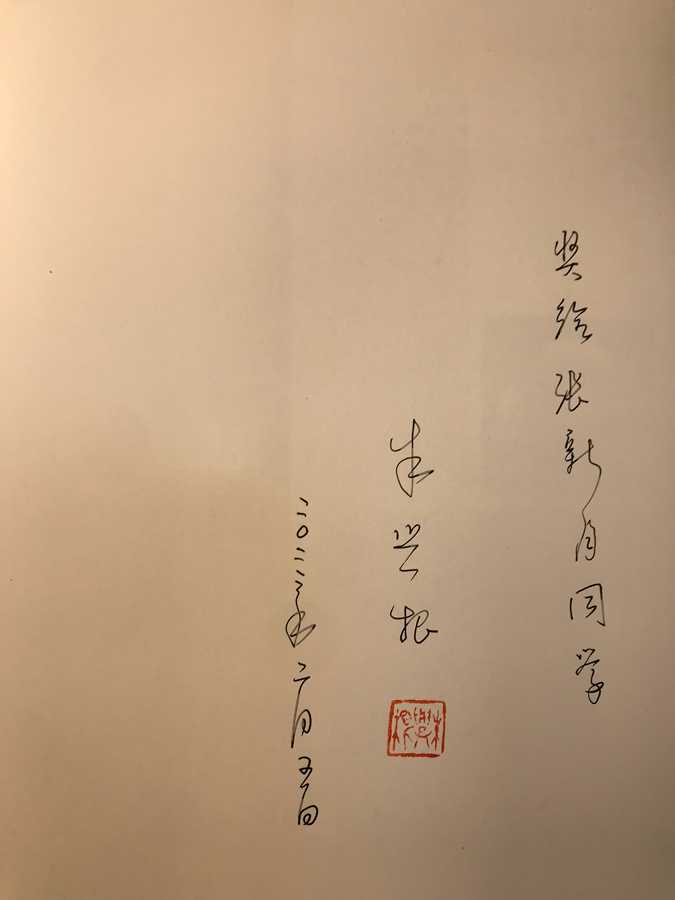 奖给张新月同学
朱兴根
二〇二三年二月五日